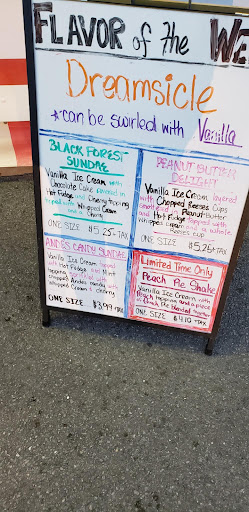 FLAVOR of the WE
Dreamsicle
*can be swirled with Vanilla
BLACK FOREST
SUNDAE
Vanilla Ice Cream with
Chocolate Cake covered in
Hot Fudge and Cherry topping
topped with Whipped Cream
and a Cherry
ONE SIZE $5.25+TAX
PEANUT BUTTER
DELIGHT
Vanilla Ice Cream layered
with Chopped Reeses Cups
Peanut Butter
and Hot Fudge topped with
whipped cream and a whole
Reeses cup
ONE SIZE $5.25+TAX
ANDES CANDY SUNDAE
Vanilla Ice Cream topped
with Hot Fudge and Mint
topping sprinkled with
chopped Andes candy with
Whipped Cream & cherry
ONE SIZE $3.99+TAX
Limited Time Only
Peach Pie Shake
Vanilla Ice Cream with
Peach topping and a piece
of Peach Pie blended together
ONE SIZE $4.70+TAX